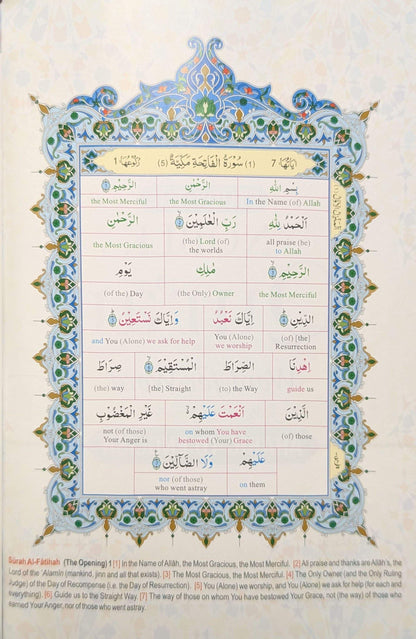 اٰيَاتُهَا 7 (1) سُوْرَةُ الْفَاتِحَةِ مَكِّيَّةٌ (5) رُكُوْعُهَا 1
بِسْمِ اللّٰهِ الرَّحْمٰنِ الرَّحِيْمِ
In the Name (of) Allah the Most Gracious the Most Merciful
اَلْحَمْدُ لِلّٰهِ رَبِّ الْعٰلَمِيْنَ الرَّحْمٰنِ
all praise (be) to Allah (the) Lord (of) the worlds the Most Gracious
الرَّحِيْمِ مٰلِكِ يَوْمِ
the Most Merciful (the Only) Owner (of the) Day
الدِّيْنِ اِيَّاكَ نَعْبُدُ وَاِيَّاكَ نَسْتَعِيْنُ
(of) [the] Resurrection You (Alone) we worship and You (Alone) we ask for help
اِهْدِنَا الصِّرَاطَ الْمُسْتَقِيْمَ صِرَاطَ
guide us (to) the Way [the] Straight (the) way
الَّذِيْنَ اَنْعَمْتَ عَلَيْهِمْ غَيْرِ الْمَغْضُوْبِ
(of) those on whom You have bestowed (Your) Grace not (of those) Your Anger is
عَلَيْهِمْ وَلَا الضَّآلِّيْنَ
on them nor (of) those who went astray
Sûrah Al-Fâtihah (The Opening) 1 [1] In the Name of Allâh, the Most Gracious, the Most Merciful. [2] All praise and thanks are Allâh's, the
Lord of the 'Alamîn (mankind, jinn and all that exists). [3] The Most Gracious, the Most Merciful. [4] The Only Owner (and the Only Ruling
Judge) of the Day of Recompense (i.e. the Day of Resurrection). [5] You (Alone) we worship, and You (Alone) we ask for help (for each and
everything). [6] Guide us to the Straight Way. [7] The way of those on whom You have bestowed Your Grace, not (the way) of those who
earned Your Anger, nor of those who went astray.